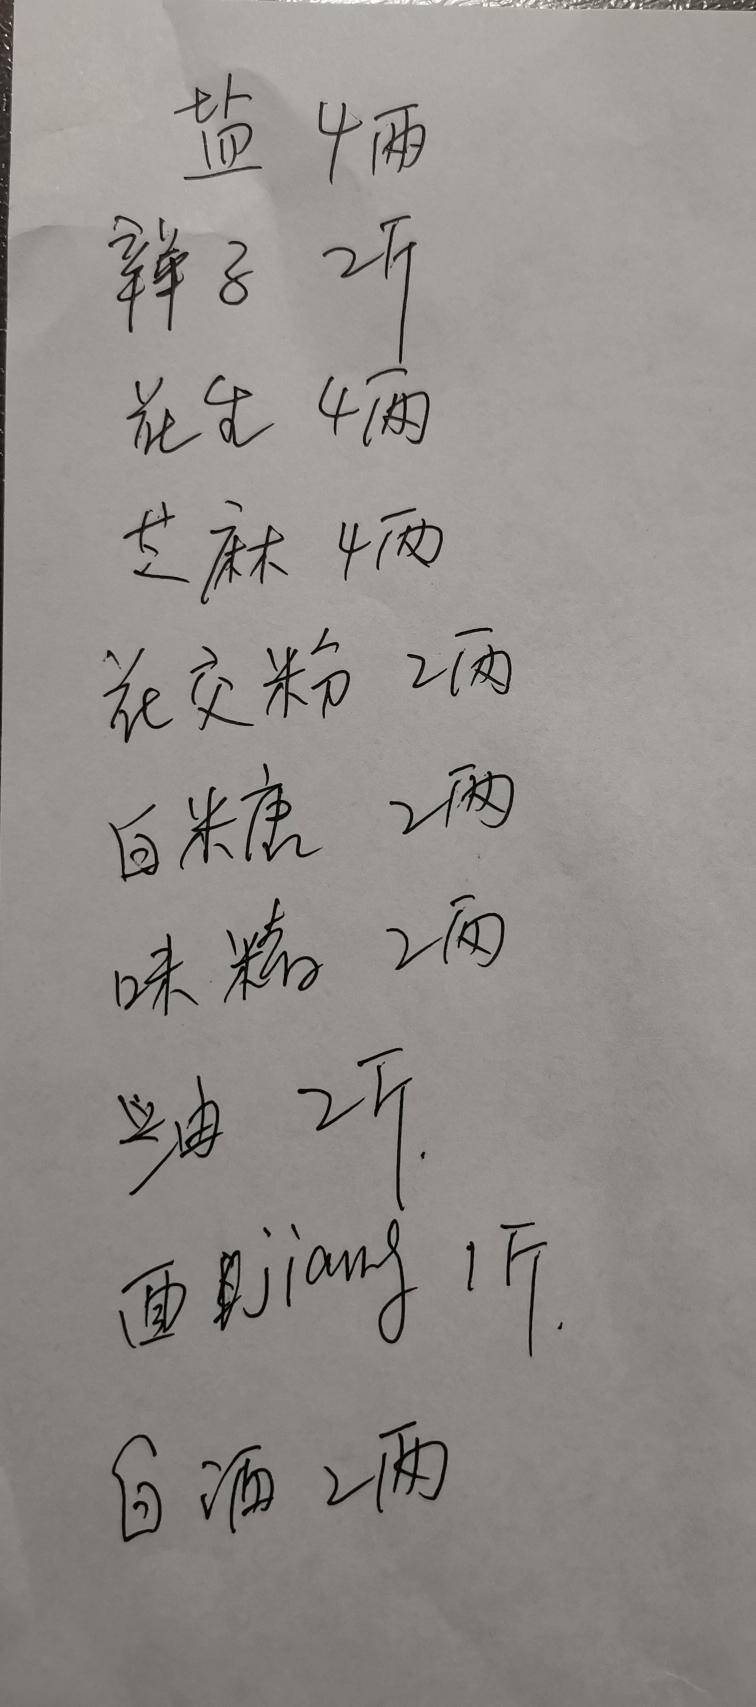 盐 4两
辣子 2斤
花生 4两
芝麻 4两
花交粉 2两
白糖 2两
味精 2两
油 2斤.
面jiang 1斤.
白酒 2两